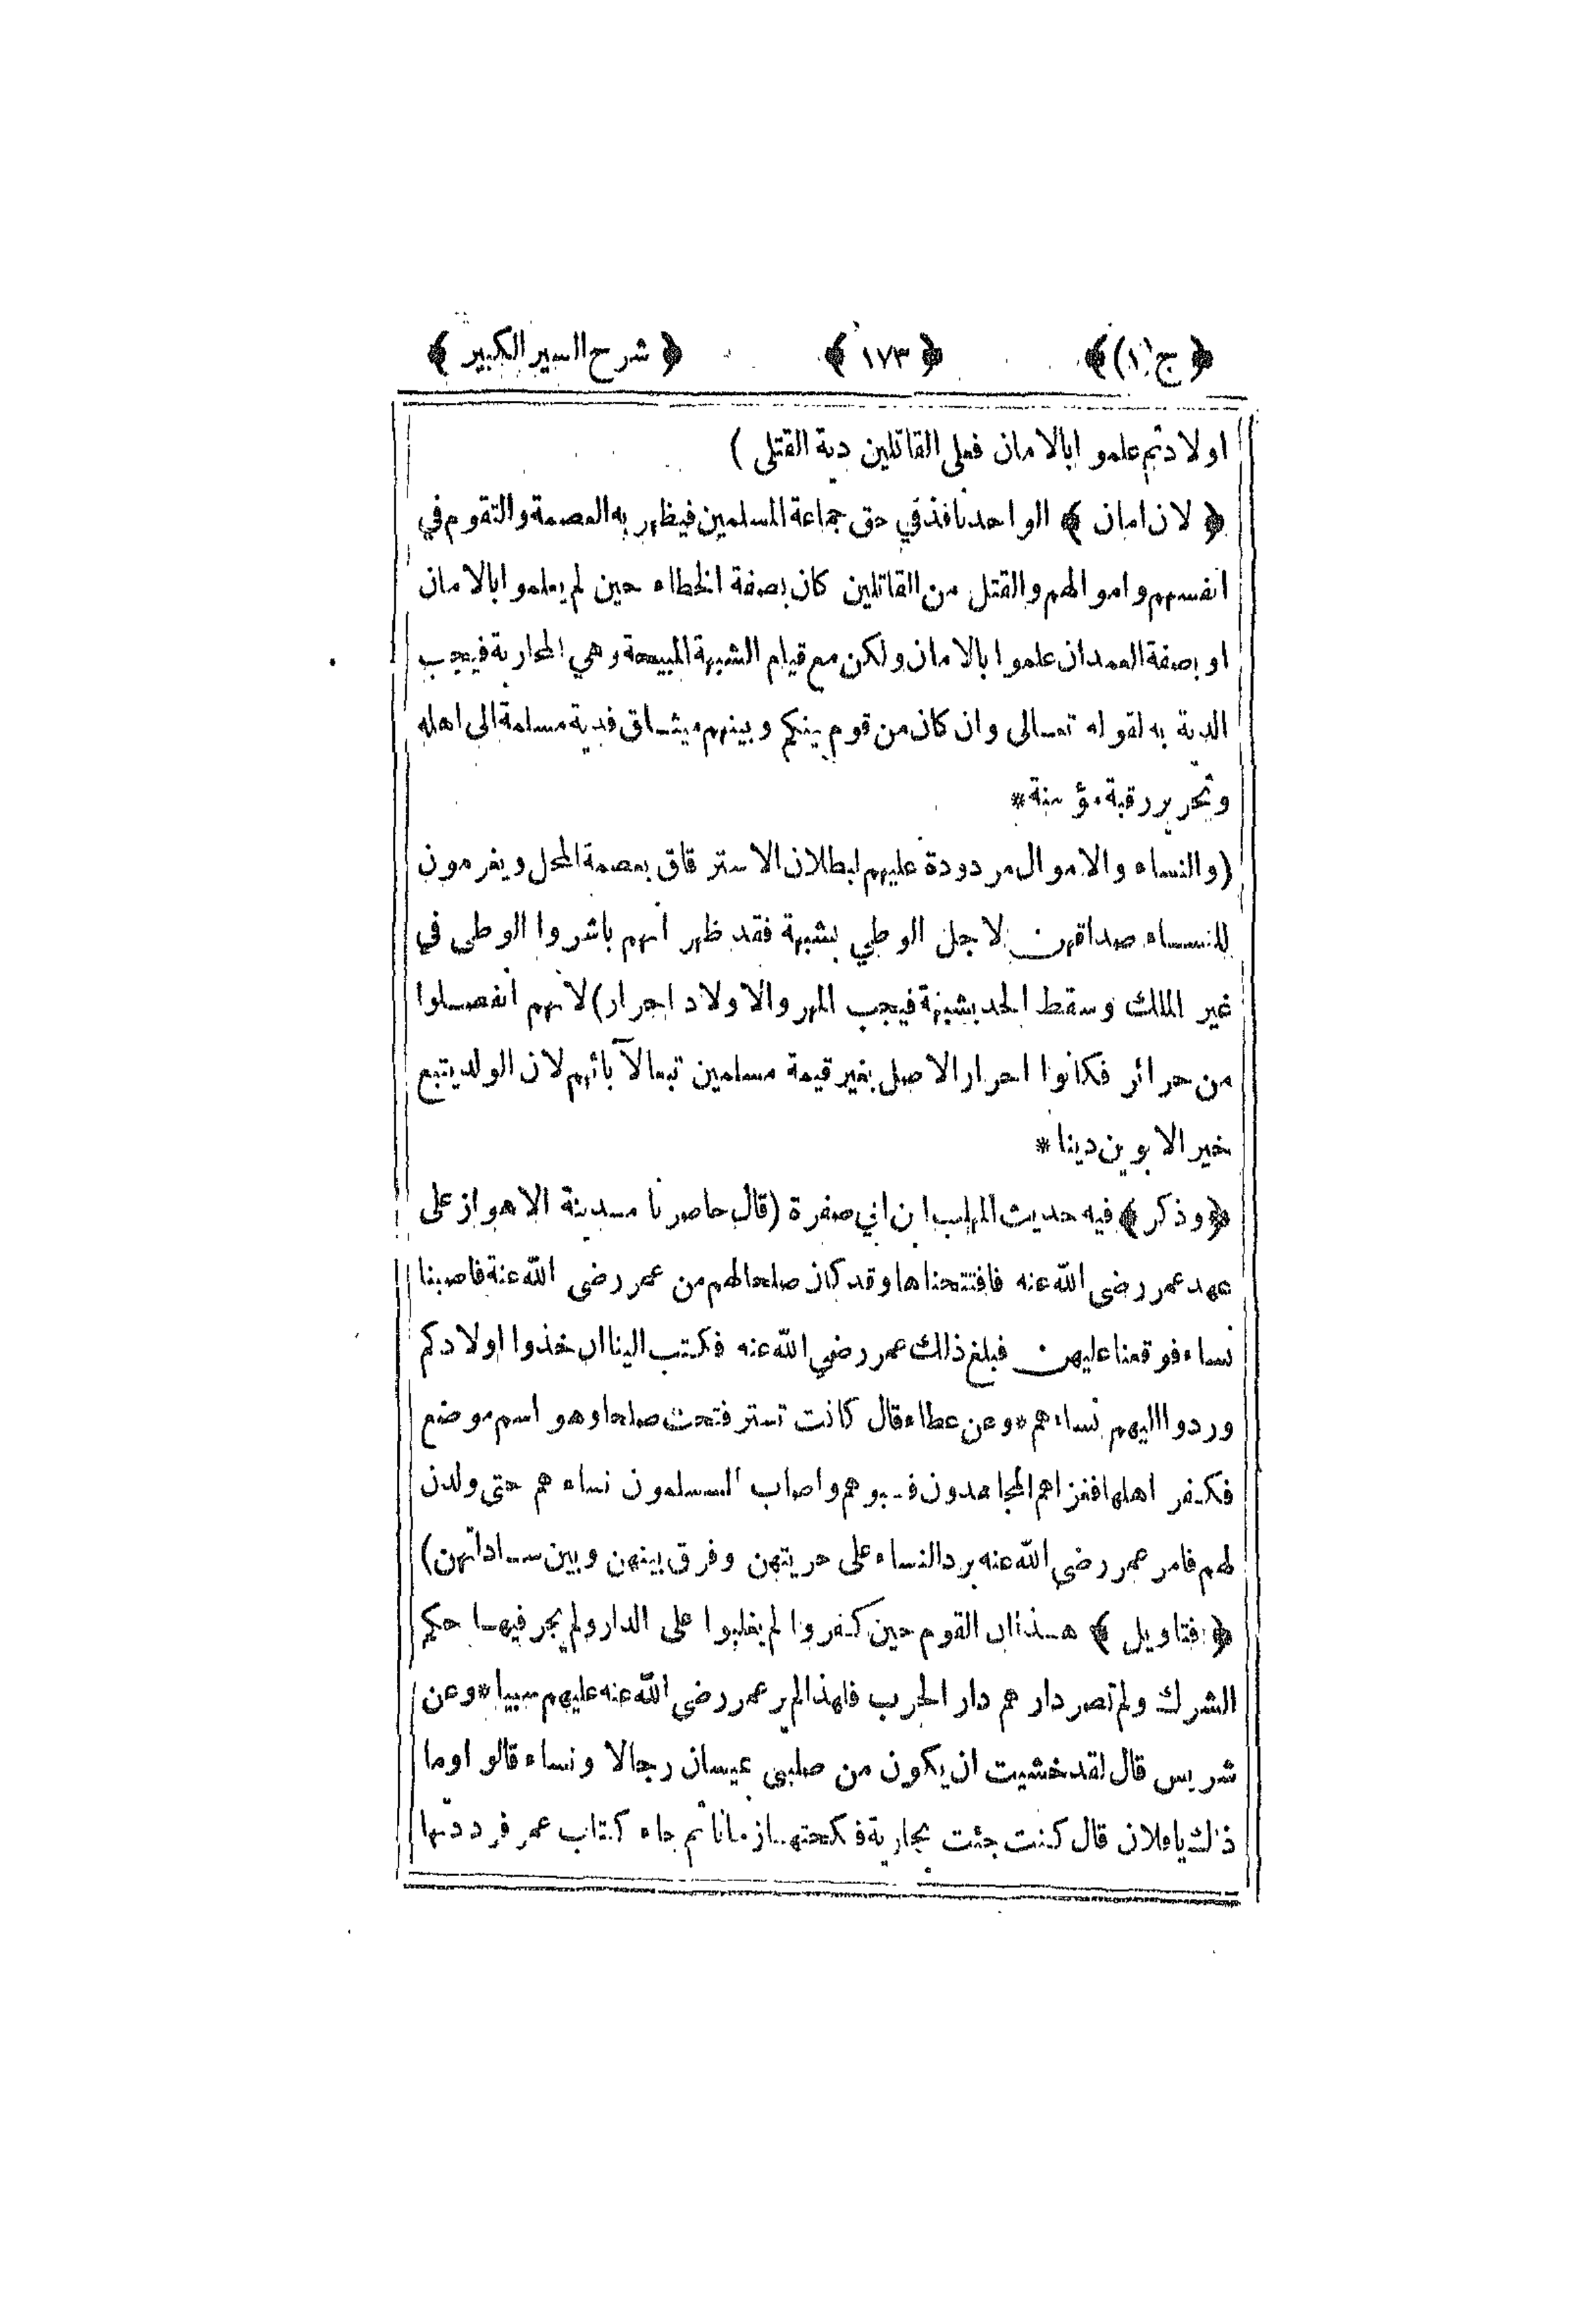 ﴿ ج (١) ﴾ ﴿ ١٧٣ ﴾ ﴿ شرح السير الكبير ﴾
اولاد ثم علموا بالامان فعلى القاتلين دية القتلى )
﴿ لان امان ﴾ الواحد نافذ في حق جماعة المسلمين فيظهر به العصمة والتقوم في
انفسهم واموالهم والقتل من القاتلين كان بصفة الخطاء حين لم يعلموا بالامان
او بصفة العمد ان علموا بالامان ولكن مع قيام الشبهة المبيحة وهي المحاربة فيجب
الدية به لقوله تعالى وان كان من قوم بينكم وبينهم ميثاق فدية مسلمة الى اهله
وتحرير رقبة مؤمنة *
(والنساء والاموال مردودة عليهم لبطلان الاسترقاق بعصمة المحل ويغرمون
للنساء صداقهن لاجل الوطي بشبهة فقد ظهر انهم باشروا الوطي في
غير الملك وسقط الحد بشبهة فيجب المهر والاولاد احرار) لانهم انفصلوا
من حرائر فكانوا احرار الاصل بغير قيمة مسلمين تبعا لآبائهم لان الولد يتبع
خير الابوين دينا *
﴿ وذكر ﴾ فيه حديث المهلب ابن ابي صفرة (قال حاصرنا مدينة الاهواز على
عهد عمر رضي الله عنه فافتتحناها وقد كان صلحا لهم من عمر رضي الله عنه فاصبنا
نساء فوقعنا عليهن فبلغ ذلك عمر رضي الله عنه فكتب الينا ان خذوا اولادكم
وردوا اليهم نساءهم * وعن عطاء قال كانت تستر فتحت صلحا وهو اسم موضع
فكفر اهلها فغزاهم المجاهدون فسبوهم واصاب المسلمون نساءهم حتى ولدن
لهم فامر عمر رضي الله عنه برد النساء على حريتهن وفرق بينهن وبين ساداتهن)
﴿ فتاويل ﴾ هذا ان القوم حين كفروا لم يغلبوا على الدار ولم يجر فيها حكم
الشرك ولم تصر دارهم دار الحرب فلهذا لم ير عمر رضي الله عنه عليهم سبيا * وعن
شريس قال لقد خشيت ان يكون من صلبي عيسان رجالا ونساء قالوا وما
ذلك يا فلان قال كنت جئت بجارية فنكحتها زمانا ثم جاء كتاب عمر فرددتها